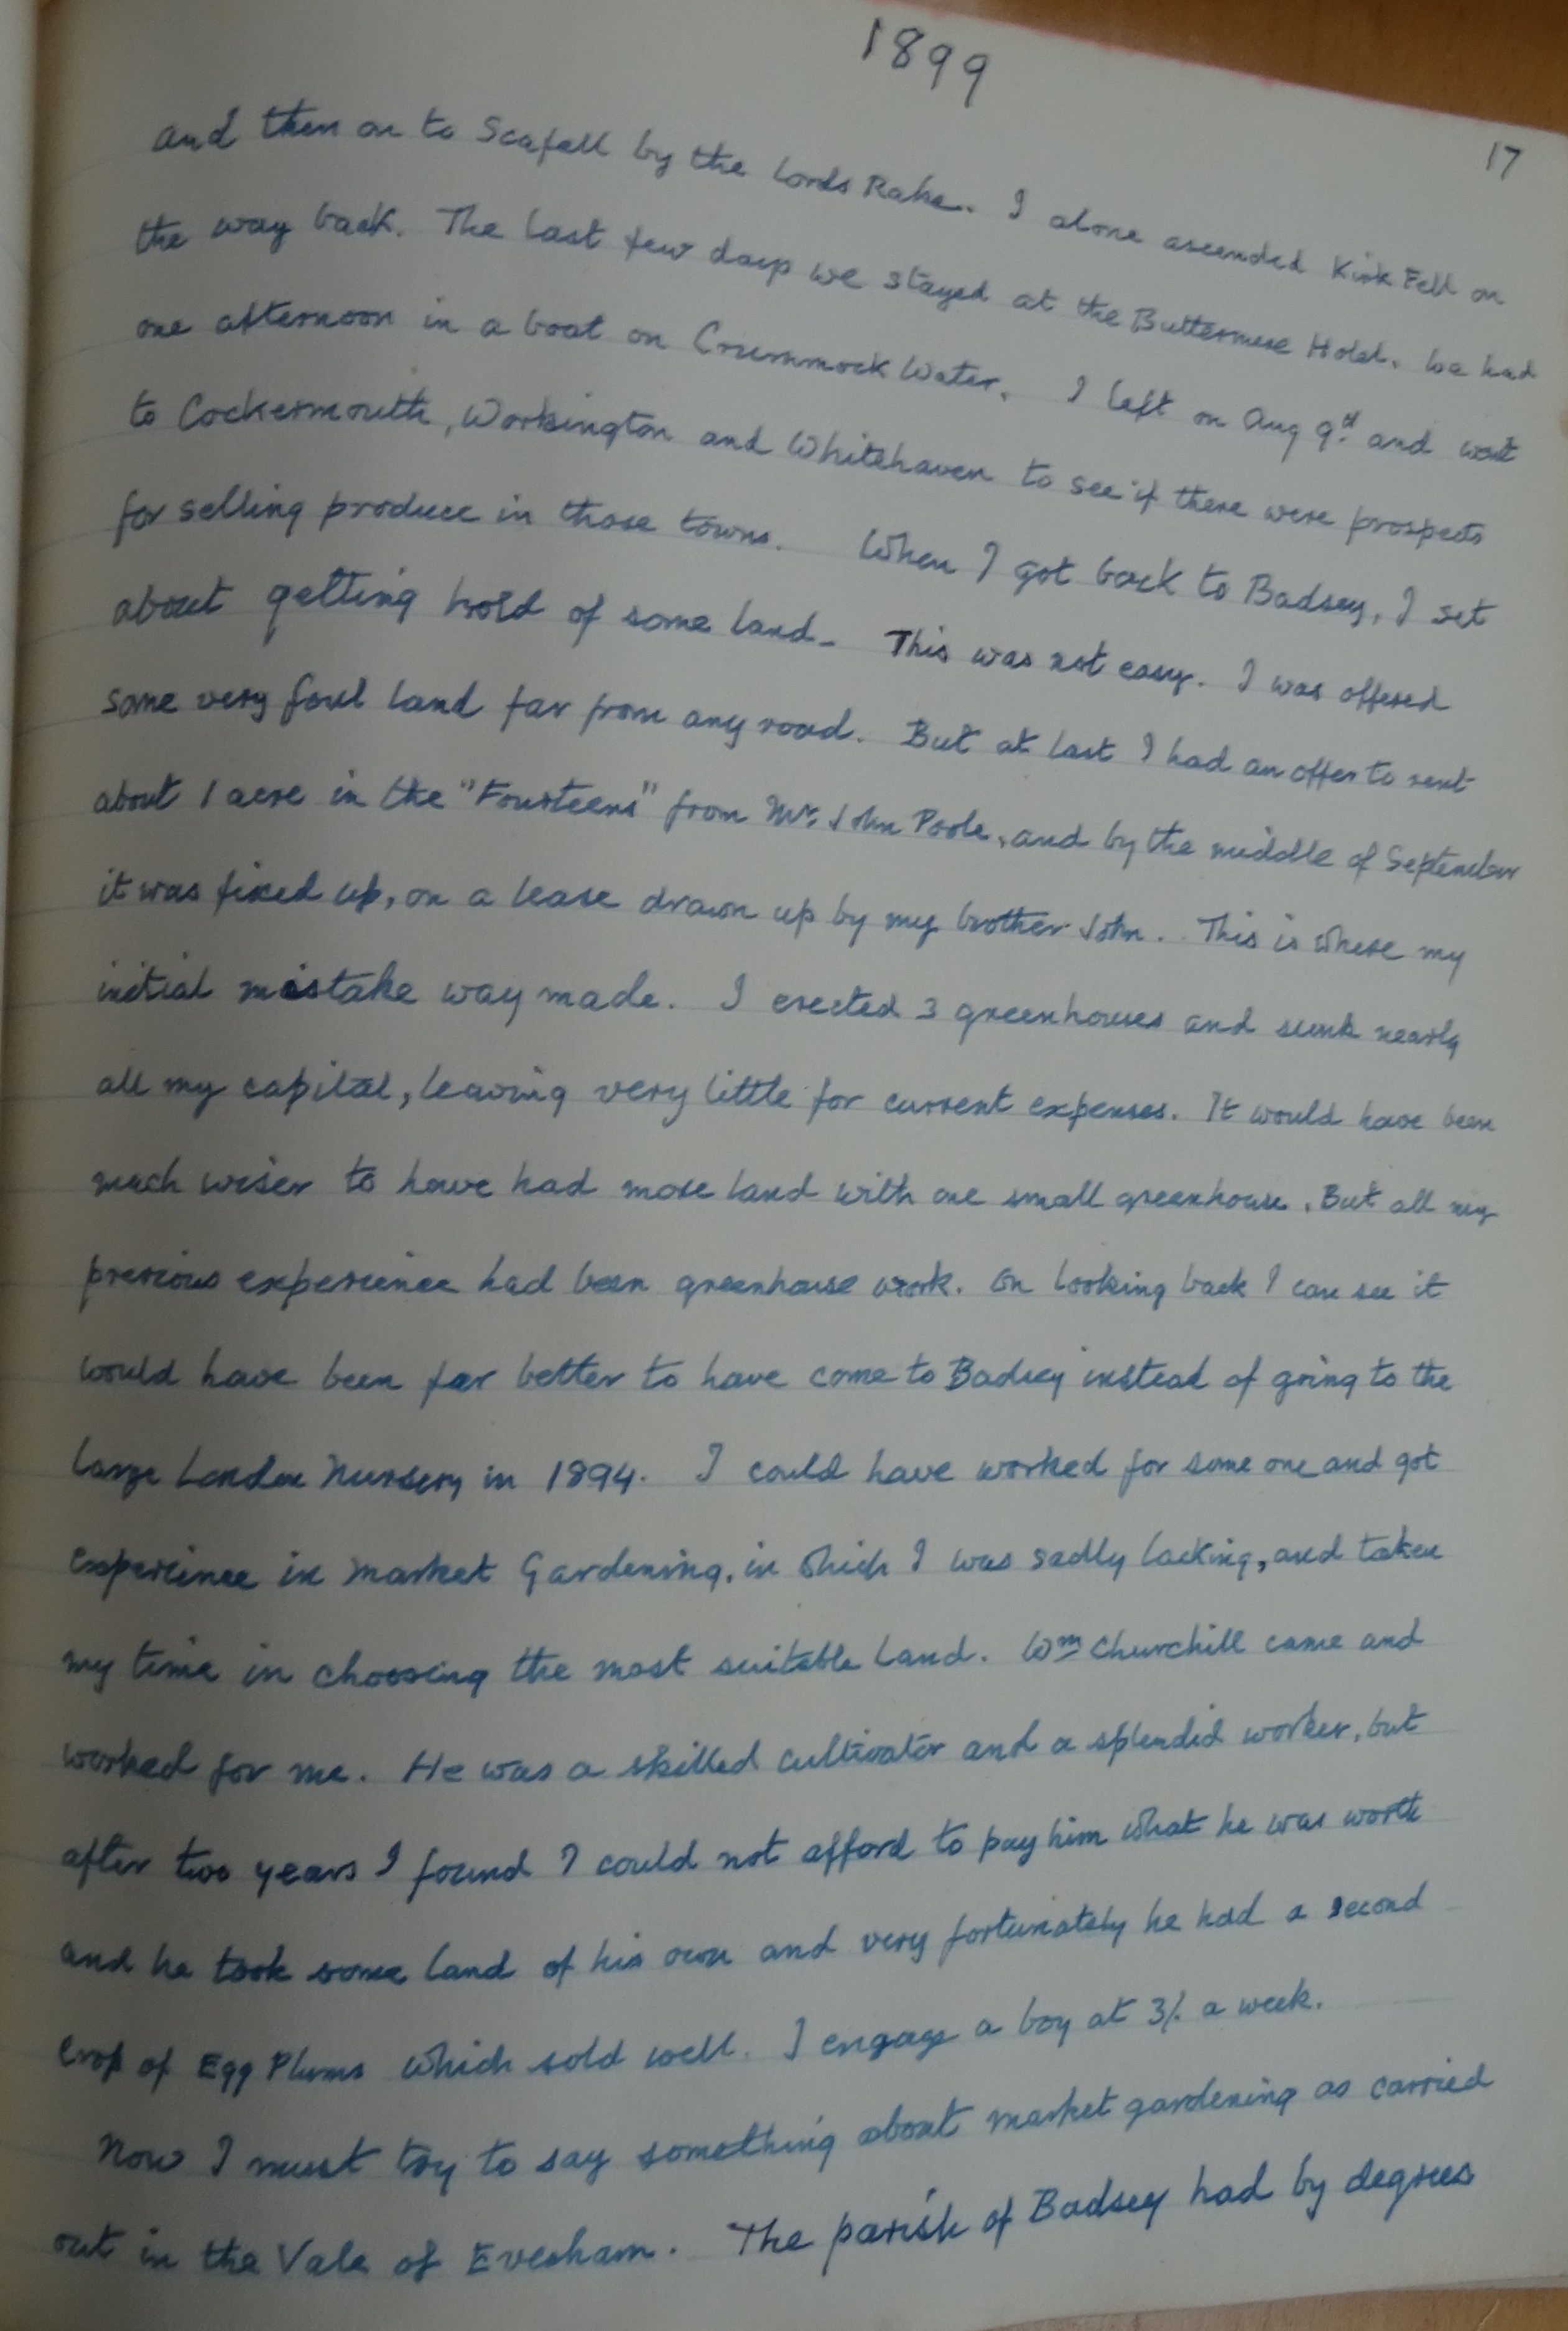 1899
17
and then on to Scafell by the Lords Rake. I alone ascended Kirk Fell on
the way back. The last few days we stayed at the Buttermere Hotel. We had
one afternoon in a boat on Crummock Water. I left on Aug 9th and went
to Cockermouth, Workington and Whitehaven to see if there were prospects
for selling produce in those towns. When I got back to Badsey, I set
about getting hold of some land. This was not easy. I was offered
some very foul land far from any road. But at last I had an offer to rent
about 1 acre in the "Fourteens" from Mr. John Poole, and by the middle of September
it was fixed up, on a lease drawn up by my brother John. This is where my
initial mistake way made. I erected 3 greenhouses and sunk nearly
all my capital, leaving very little for current expenses. It would have been
much wiser to have had more land with one small greenhouse. But all my
previous experience had been greenhouse work. On looking back I can see it
would have been far better to have come to Badsey instead of going to the
large London Nursery in 1894. I could have worked for some one and got
experience in Market Gardening, in which I was sadly lacking, and taken
my time in choosing the most suitable land. Wm Churchill came and
worked for me. He was a skilled cultivator and a splendid worker, but
after two years I found I could not afford to pay him what he was worth
and he took some land of his own and very fortunately he had a second
crop of Egg Plums which sold well. I engage a boy at 3/. a week.
Now I must try to say something about market gardening as carried
out in the Vale of Evesham. The parish of Badsey had by degrees